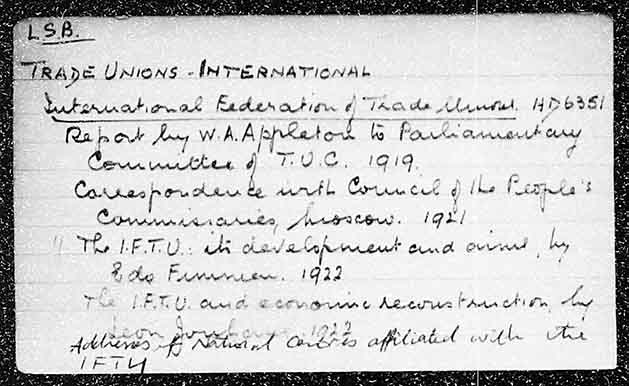 L.S.B.
TRADE UNIONS - INTERNATIONAL
International Federation of Trade Unions. HD6351
Report by W.A. Appleton to Parliamentary
Committee of T.U.C. 1919.
Correspondence with Council of the People's
Commissaries, Moscow. 1921
" The I.F.T.U.: its development and aims, by
Edo Fimmen. 1922
The I.F.T.U. and economic reconstruction, by
Leon Jouhaux. 1922
Addresses of National Centres affiliated with the
IFTU